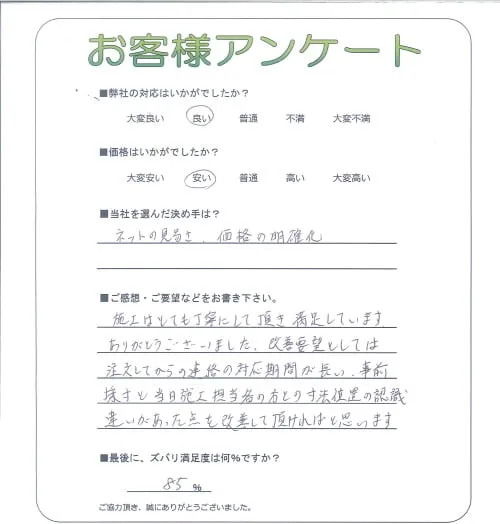 お客様アンケート
■弊社の対応はいかがでしたか？
大変良い 良い 普通 不満 大変不満
■価格はいかがでしたか？
大変安い 安い 普通 高い 大変高い
■当社を選んだ決め手は？
ネットの見易さ、価格の明確化
■ご感想・ご要望などをお書き下さい。
施工はとても丁寧にして頂き満足しています
ありがとうございました、改善要望としては
注文してからの連絡の対応期間が長い、事前
採寸と当日施工担当者の方との寸法位置の認識
違いがあった点も改善して頂ければと思います
■最後に、ズバリ満足度は何％ですか？
85 ％
ご協力頂き、誠にありがとうございました。